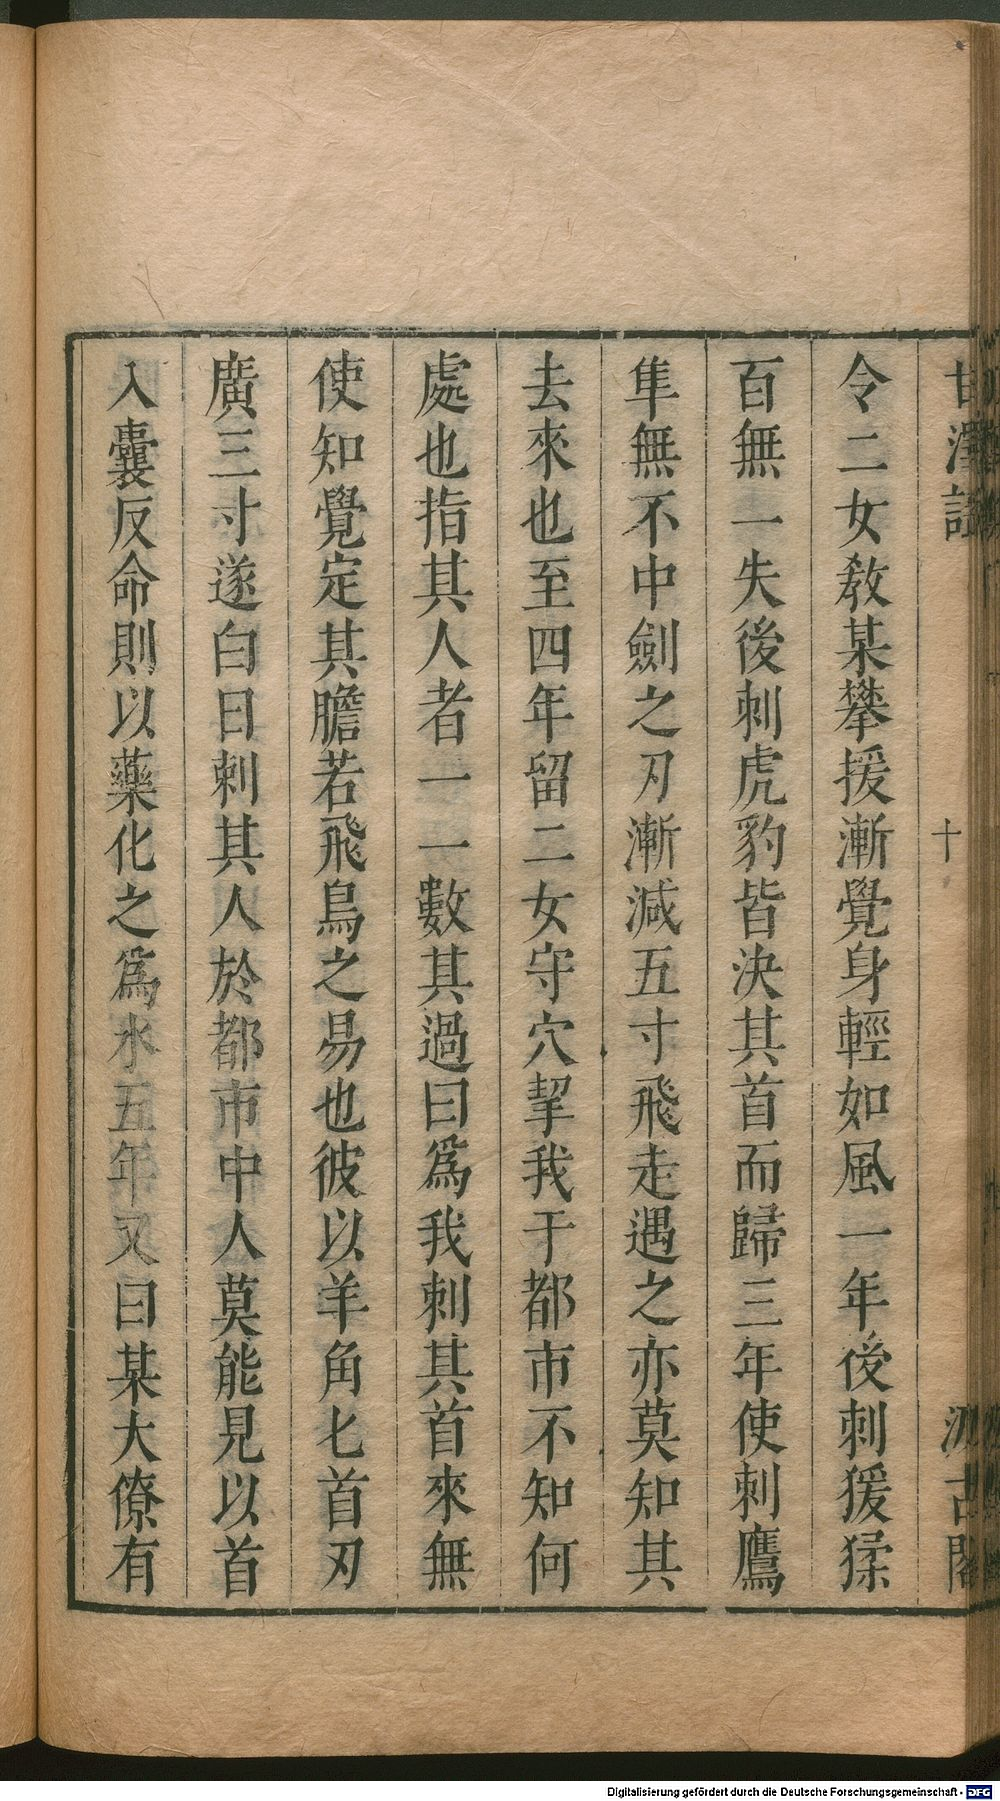 甘澤謠 十 汲古閣
令二女敎某攀援漸覺身輕如風一年後刺猨猱
百無一失後刺虎豹皆決其首而歸三年使刺鷹
隼無不中劍之刃漸減五寸飛走遇之亦莫知其
去來也至四年留二女守穴挈我于都市不知何
處也指其人者一一數其過曰爲我刺其首來無
使知覺定其膽若飛鳥之易也彼以羊角匕首刃
廣三寸遂白日刺其人於都市中人莫能見以首
入囊反命則以藥化之爲水五年又曰某大僚有
Digitalisierung gefördert durch die Deutsche Forschungsgemeinschaft - DFG